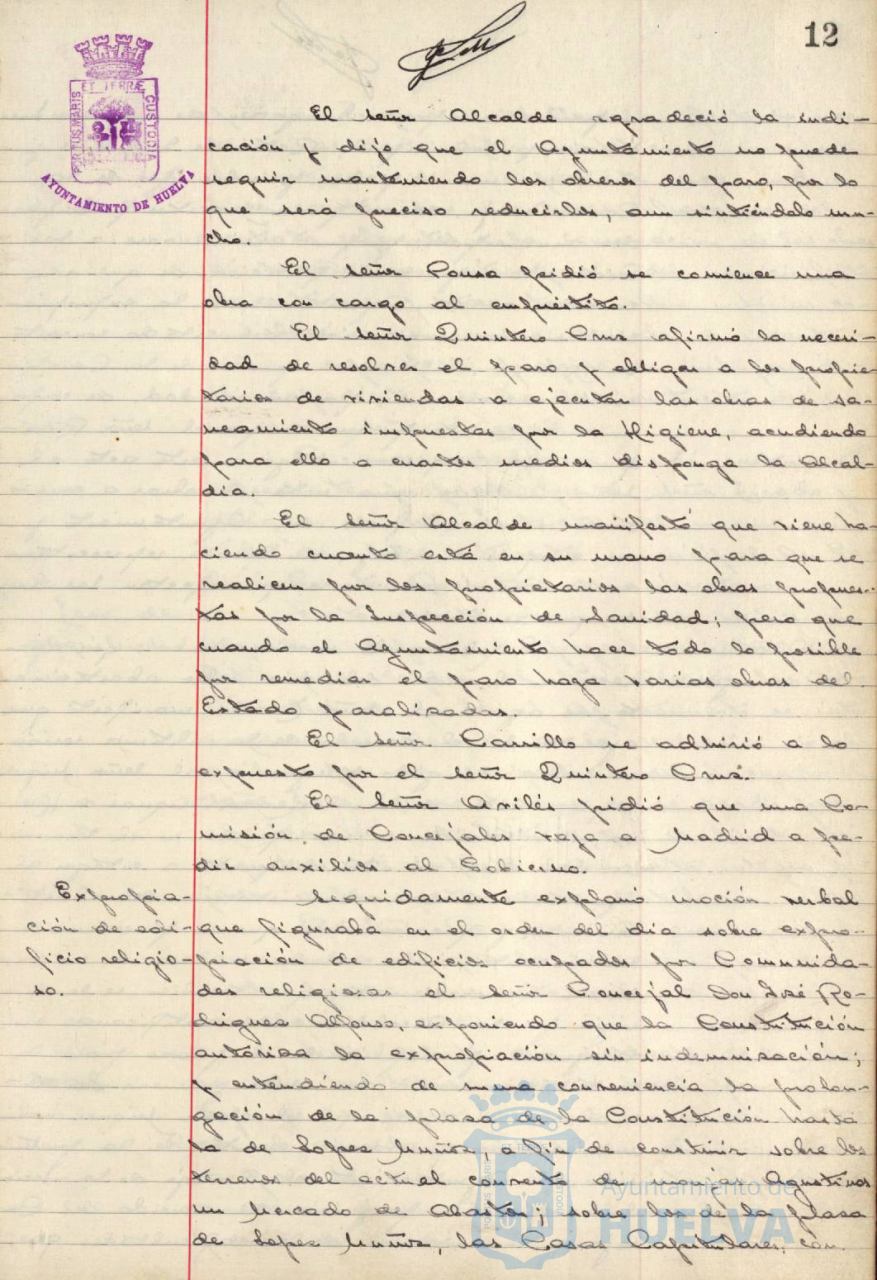 12
PORTUS MARIS
ET TERRÆ
CUSTODIA
AYUNTAMIENTO DE HUELVA
El señor Alcalde agradeció la indi-
cación y dijo que el Ayuntamiento no puede
seguir manteniendo los obreros del paro, por lo
que será preciso reducirlos, aun sintiéndolo mu-
cho.
El señor Ponsa pidió se comience una
obra con cargo al empréstito.
El señor Quintero Cruz afirmó la necesi-
dad de resolver el paro y obligar a los propie-
tarios de viviendas a ejecutar las obras de sa-
neamiento impuestas por la Higiene, acudiendo
para ello a cuantos medios disponga la Alcal-
día.
El señor Alcalde manifestó que viene ha-
ciendo cuanto está en su mano para que se
realicen por los propietarios las obras propues-
tas por la Inspección de Sanidad; pero que
cuando el Ayuntamiento hace todo lo posible
por remediar el paro haga varias obras del
Estado paralizadas.
El señor Carrillo se adhirió a lo
expuesto por el señor Quintero Cruz.
El señor Avilés pidió que una Co-
misión de Concejales vaya a Madrid a pe-
dir auxilios al Gobierno.
Expropia-
ción de edi-
ficio religio-
so.
Seguidamente explanó moción verbal
que figuraba en el orden del día sobre expro-
piación de edificios ocupados por Comunida-
des religiosas el señor Concejal Don José Ro-
driguez Alfonso, exponiendo que la Constitución
autoriza la expropiación sin indemnización;
y entendiendo de suma conveniencia la prolon-
gación de la plaza de la Constitución hasta
la de Lopez Muñoz, a fin de construir sobre los
terrenos del actual convento de monjas Agustinas
un Mercado de Abastos; sobre los de la plaza
de Lopez Muñoz, las Casas Capitulares, con
Ayuntamiento de
HUELVA